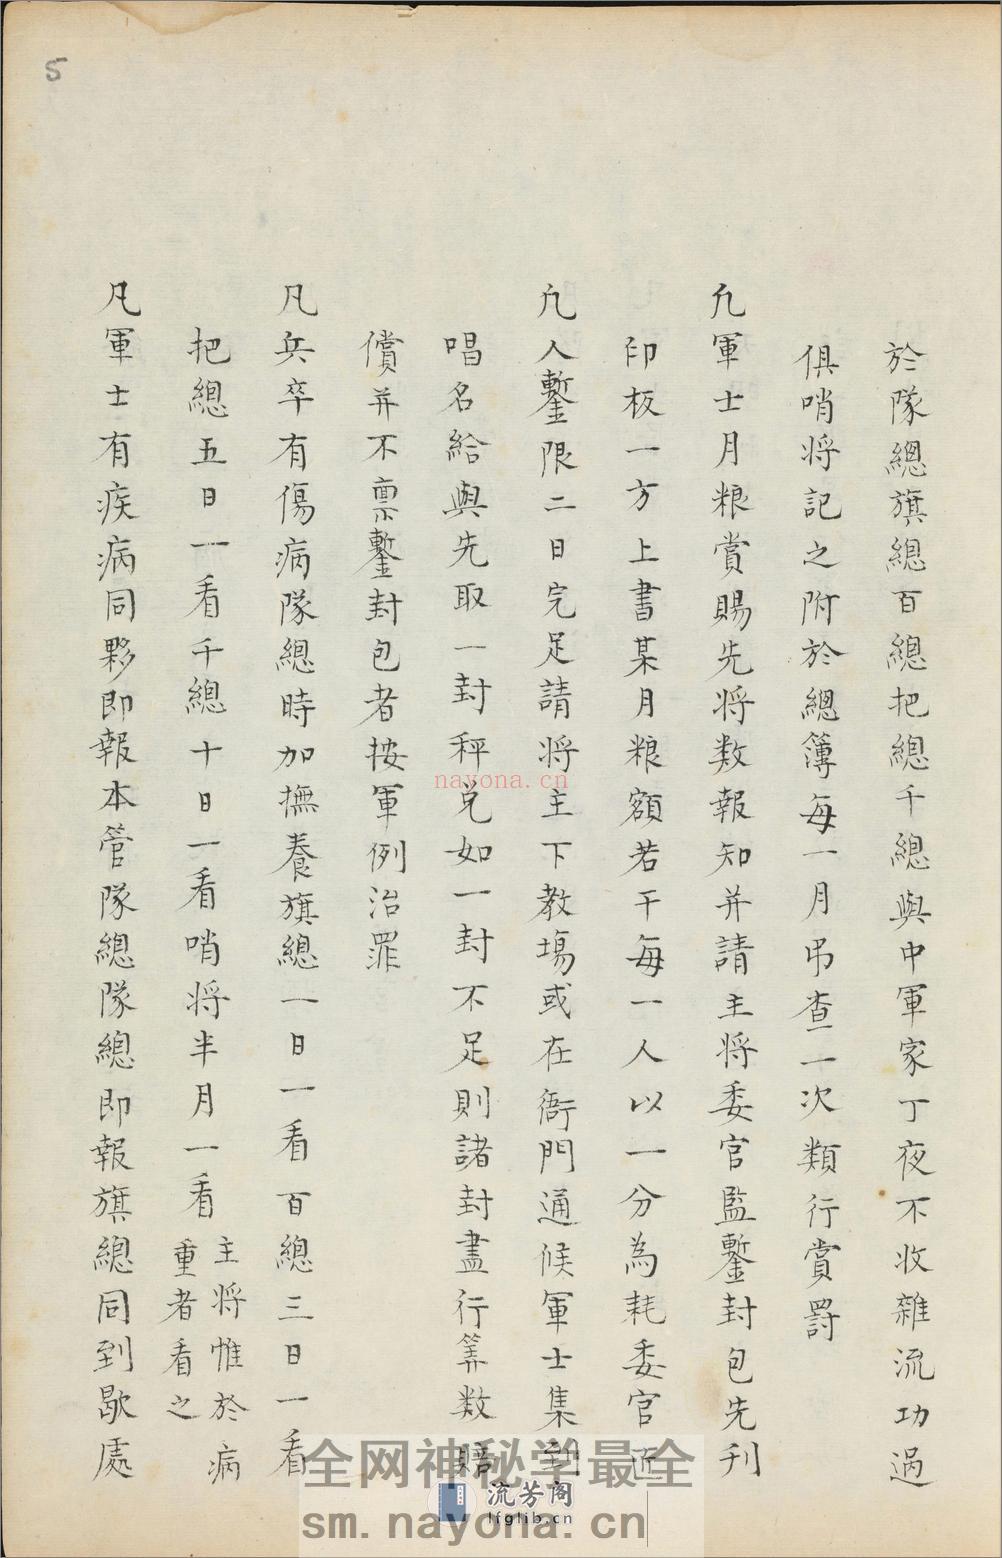 5
於隊總旗總百總把總千總與中軍家丁夜不收雜流功過
俱哨将記之附於總簿每一月吊查一次類行賞罸
凢軍士月粮賞賜先将数報知并請主将委官監鏨封包先刋
印板一方上書某月粮額若干每一人以一分為耗委官匠
凢人鏨限二日完足請将主下教場或在衙門通候軍士集到
唱名給與先取一封秤兌如一封不足則諸封盡行筭数賠
償并不禀鏨封包者按軍例治罪
凡兵卒有傷病隊總時加撫養旗總一日一看百總三日一看
把總五日一看千總十日一看哨将半月一看
主将惟於病
重者看之
凡軍士有疾病同夥即報本管隊總隊總即報旗總同到歇處
nayona.cn
全网神秘学最全
流芳阁
lfglib.cn
sm.nayona.cn